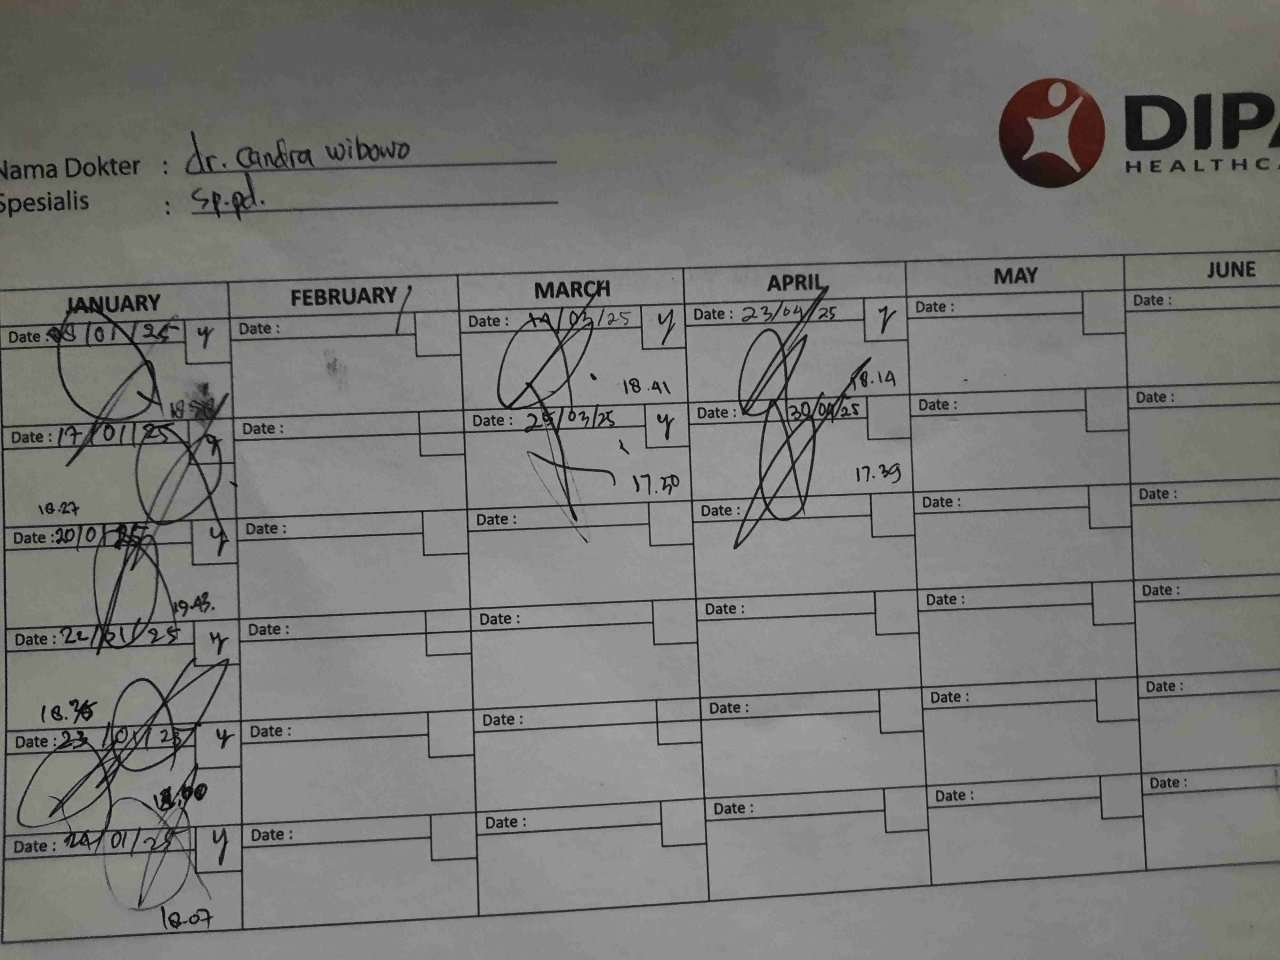 DIPA
HEALTHCA
Nama Dokter : dr. Candra Wibowo
Spesialis : Sp.pd.
JANUARY FEBRUARY MARCH APRIL MAY JUNE
Date : /01/25 y Date : Date : 14/03/25 y Date : 23/04/25 y Date : Date :
18.41 18.14
Date : 17/01/25 y Date : Date : 25/03/25 y Date : 30/04/25 Date : Date :
18.27 17.50 17.39
Date : 20/01/25 y Date : Date : Date : Date : Date :
19.43.
Date : 22/01/25 y Date : Date : Date : Date : Date :
18.35
Date : 23/01/25 y Date : Date : Date : Date : Date :
Date : 24/01/25 y Date : Date : Date : Date : Date :
18.07